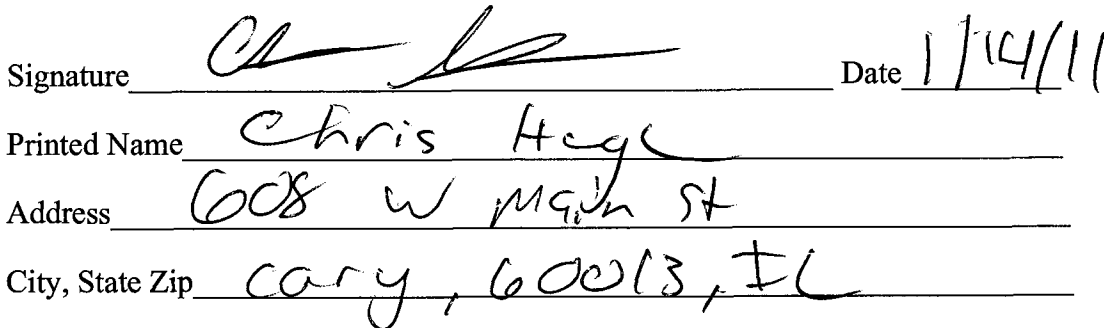 Signature Date 1/14/11
Printed Name Chris
Address 608 W Main St
City, State Zip Cary, 60013, IL